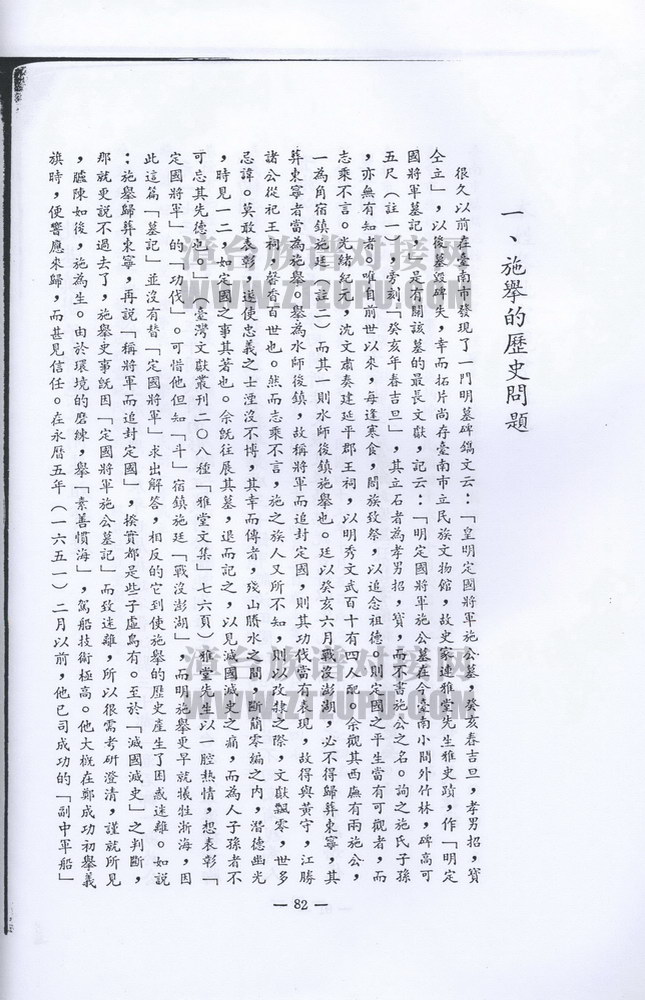 一、施舉的歷史問題
很久以前在臺南市發現了一門明墓碑鐫文云：「皇明定國將軍施公墓，癸亥春吉旦，孝男招，寶
仝立」，以後墓毀碑失，幸而拓片尚存臺南市立民族文物館，故史家連雅堂先生雅史蹟，作「明定
國將軍墓記」，是有關該墓的最長文獻，記云：「明定國將軍施公墓在今臺南小南門外竹林，碑高可
五尺（註一），旁刻「癸亥年春吉旦」，其立石者為孝男招，寶，而不書施公之名。詢之施氏子孫
，亦無有知者。唯自前世以來，每逢寒食，閤族致祭，以追念祖德。則定國之平生當有可觀者，而
志乘不言。光緒紀元，沈文肅奏建延平郡王祠，以明秀文武百十有四人配。余觀其西廡有兩施公，
一為角宿鎮施廷（註二）而其一則水師後鎮施舉也。廷以癸亥六月戰沒澎湖，必不得歸葬東寧，其
葬東寧者當為施舉。舉為水師後鎮，故稱將軍而追封定國，則其功伐當有表現，故得與黃守，江勝
諸公從祀王祠，馨香百世也。然而志乘不言，施之族人又所不知，則以改隸之際，文獻飄零，世多
忌諱。莫敢表彰，遂使忠義之士湮沒不博，其幸而傳者，殘山賸水之間，斷簡零編之內，潛德幽光
，時見一二，如定國之事其著也。余既往展其墓，退而記之，以見滅國滅史之痛，而為人子孫者不
可忘其先德也。」（臺灣文獻叢刊二〇八種「雅堂文集」七六頁）雅堂先生以一腔熱情，想表彰「
定國將軍」的「功伐」。可惜他但知「斗」宿鎮施廷「戰沒澎湖」，而明施舉更早就犧牲浙海，因
此這篇「墓記」並沒有替「定國將軍」求出解答，相反的它到使施舉的歷史產生了困惑迷離。如説
：施舉歸葬東寧，再説「稱將軍而追封定國」，揆實都是些子虛烏有。至於「滅國滅史」之判斷，
那就更説不過去了，施舉史事既因「定國將軍施公墓記」而致迷離，所以很需考研澄清，謹就所見
，臚陳如後，施為生。由於環境的磨練，舉「素善慣海」，駕船技術極高。他大概在鄭成功初舉義
旗時，便響應來歸，而甚見信任。在永曆五年（一六五一）二月以前，他已司成功的「副中軍船」
— 82 —
漳台族谱对接网
WWW.ZTZUPU.COM
漳台族谱对接网
WWW.ZTZUPU.COM